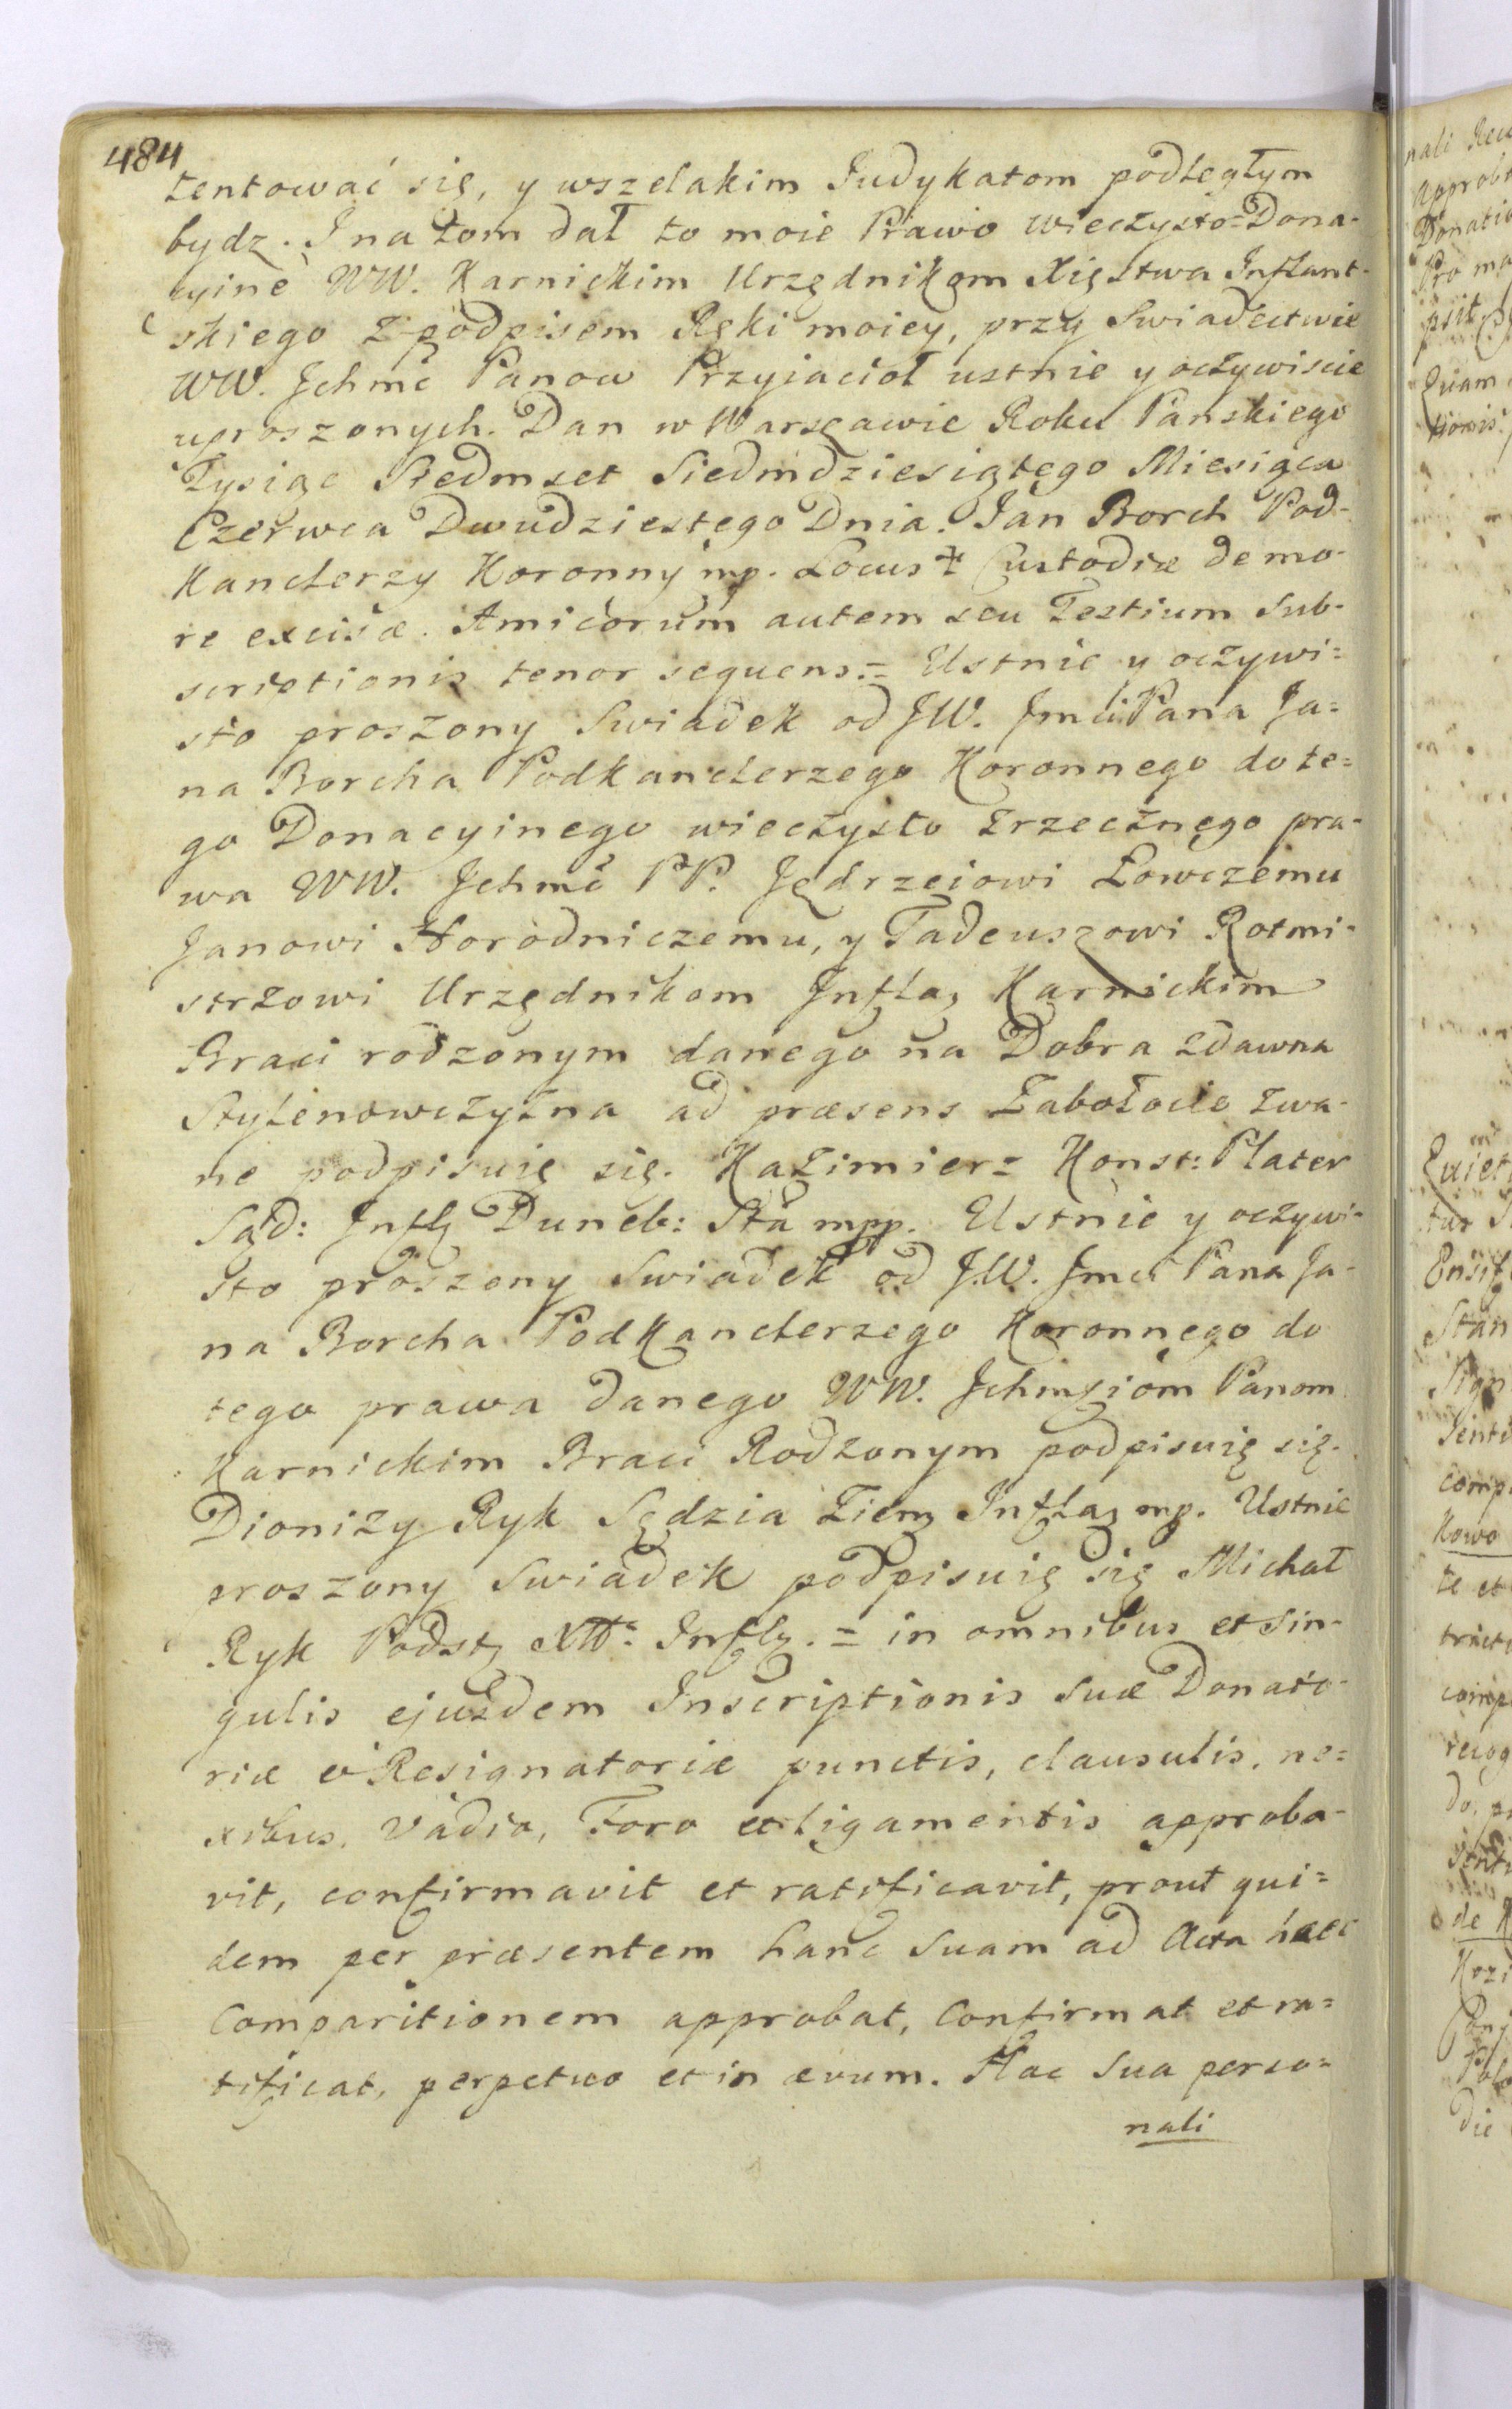 484
tentować się, y wszelakim Judykatom podległym
bydz. I na tom dał to moie Prawo wieczysto=Dona-
cyine WW. Karnickim Urzędnikom Xięstwa Inflant-
skiego z podpisem Ręki moiey, przy Swiadectwie
WW. Jchmć Panow Przyiacioł ustnie y oczywiscie
uproszonych. Dan w Warszawie Roku Panskiego
Tysiąc Siedmset Siedmdziesiątego Miesiąca
Czerwca Dwudziestego Dnia. Jan Borch Pod-
Kanclerzy Koronny mp. Locus Custodiæ de mo-
re excisæ. Amicorum autem seu Testium Sub-
scriptionis tenor sequens.= Ustnie y oczywi=
sto proszony Swiadek od JW. Jmci Pana Ja=
na Borcha Podkanclerzego Koronnego do te=
go Donacyinego wieczysto zrzecznego pra-
wa WW. Jchmć PP. Jędrzeiowi Łowczemu
Janowi Horodniczemu, y Tadeuszowi Rotmi-
strzowi Urzędnikom Infla Karnickim
Braci rodzonym danego na Dobra zdawna
Stylenowczyzna ad præsens Zabołocie zwa-
ne podpisuię się. Kazimierz Konst: Plater
Sąd: Infl Duneb: Sta mpp. Ustnie y oczywi-
sto proszony Swiadek od J.W. Jmci Pana Ja-
na Borcha PodKanclerzego Koronnego do
tego prawa danego WW. Jchmściom Panom
Karnickim Braci Rodzonym podpisuię się.
Dionizy Ryk Sędzia Ziem Infla mp. Ustnie
proszony Swiadek podpisuię się Michał
Ryk Podst XWa Infl. = in omnibus et sin-
gulis ejusdem Inscriptionis suæ Donato-
riæ et Resignatoriæ punctis, clausulis, ne=
xibus, vadio, Foro et ligamentis approba-
vit, confirmavit et ratificavit, prout qui=
dem per præsentem hanc suam ad Acta hæc
Comparitionem approbat, Confirmat et ra=
tificat, perpetuo et in ævum. Hac sua perso=
nali